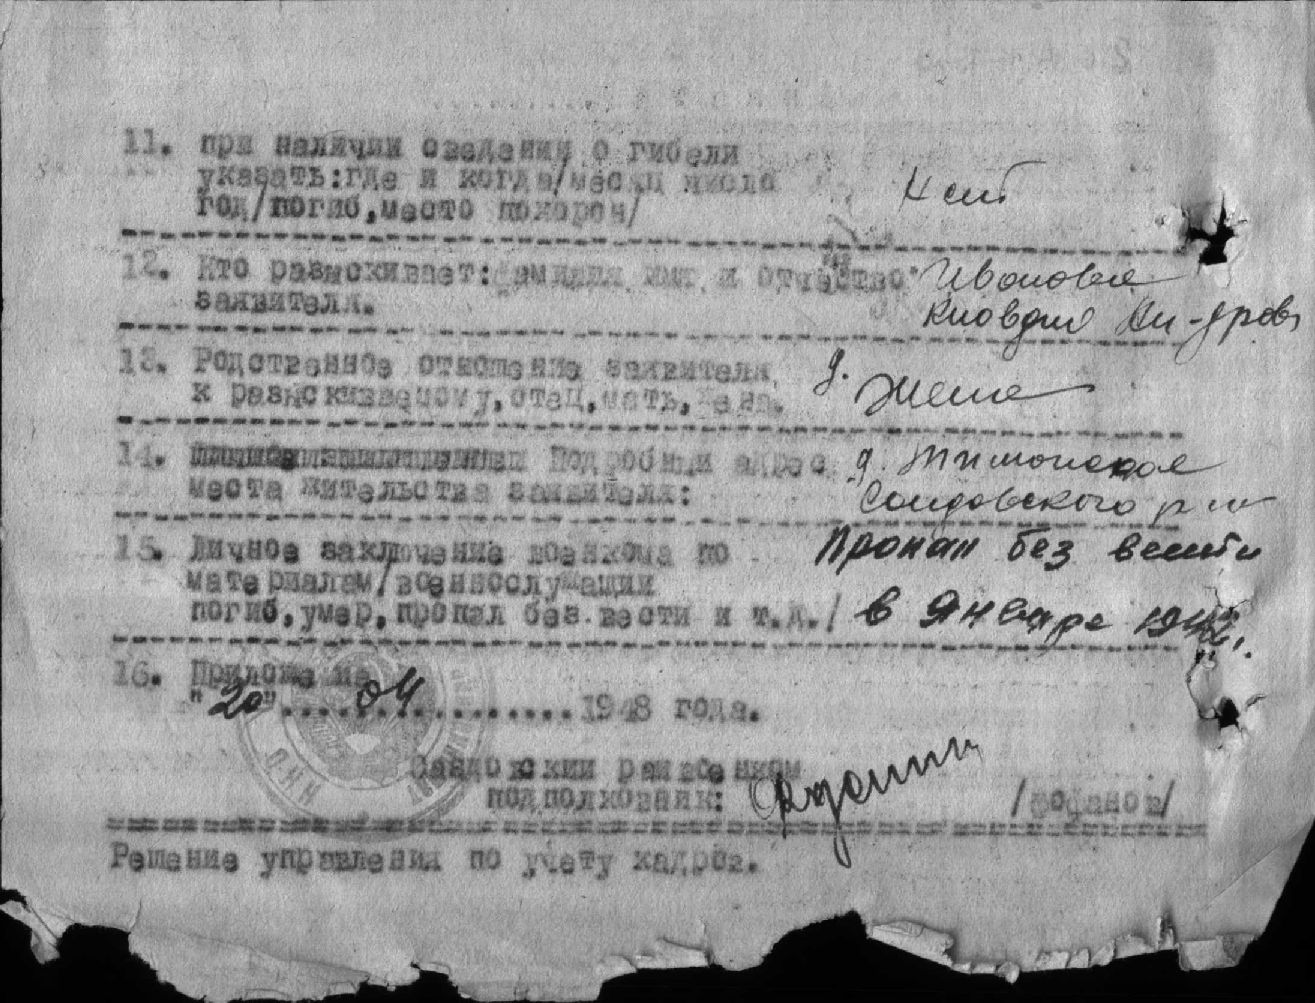 11. при наличии сведении о гибели
указать:где и когда/месяц число
год/погиб,место похорон/
Нет
12. Кто разыскивает:фамилия имя и отчество
заявителя.
Иванова
Клавдия
13. Родственное отношение заявителя
к разыскиваемому,отец,мать,жена.
Жена
14. Подробный адрес
места жительства заявителя:
д.
Сандовского р-на
15. Личное заключение военкома по
материалам/военнослужащий
погиб,умер,пропал без.вести и т.д./
Пропал без вести
в Январе 1942г.
16. Приложение
"20" 04 1948 года.
Сандовский райвоенком
подполковник:
/Фофанов/
Решение управления по учету кадров.